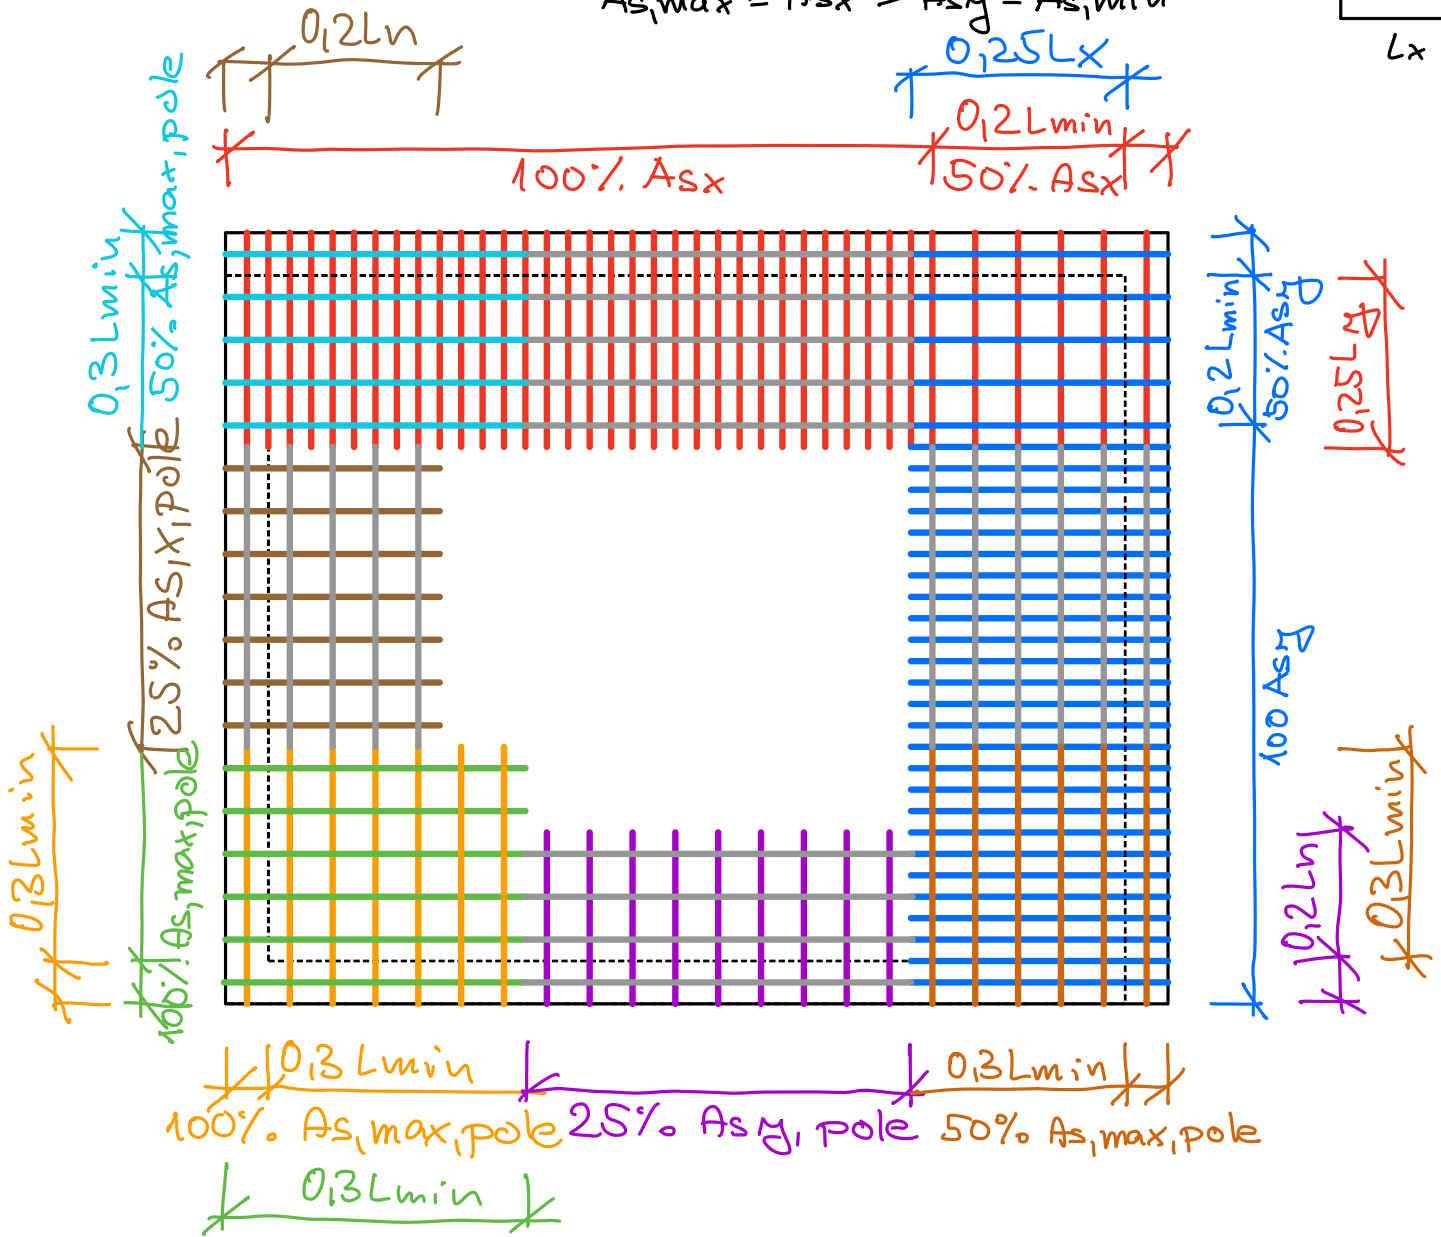 As,max = Asx > Asy = As,min
Lx
0,2Ln
0,25Lx
0,2Lmin
100% Asx
50% Asx
0,3Lmin
50% As,max,pole
25% As,x,pole
0,3Lmin
100% As,max,pole
0,2Lmin
50% Asy
0,25Ly
100 Asy
0,2Ln
0,3Lmin
0,3Lmin
0,3Lmin
100% As,max,pole
25% Asy, pole
50% As,max,pole
0,3Lmin